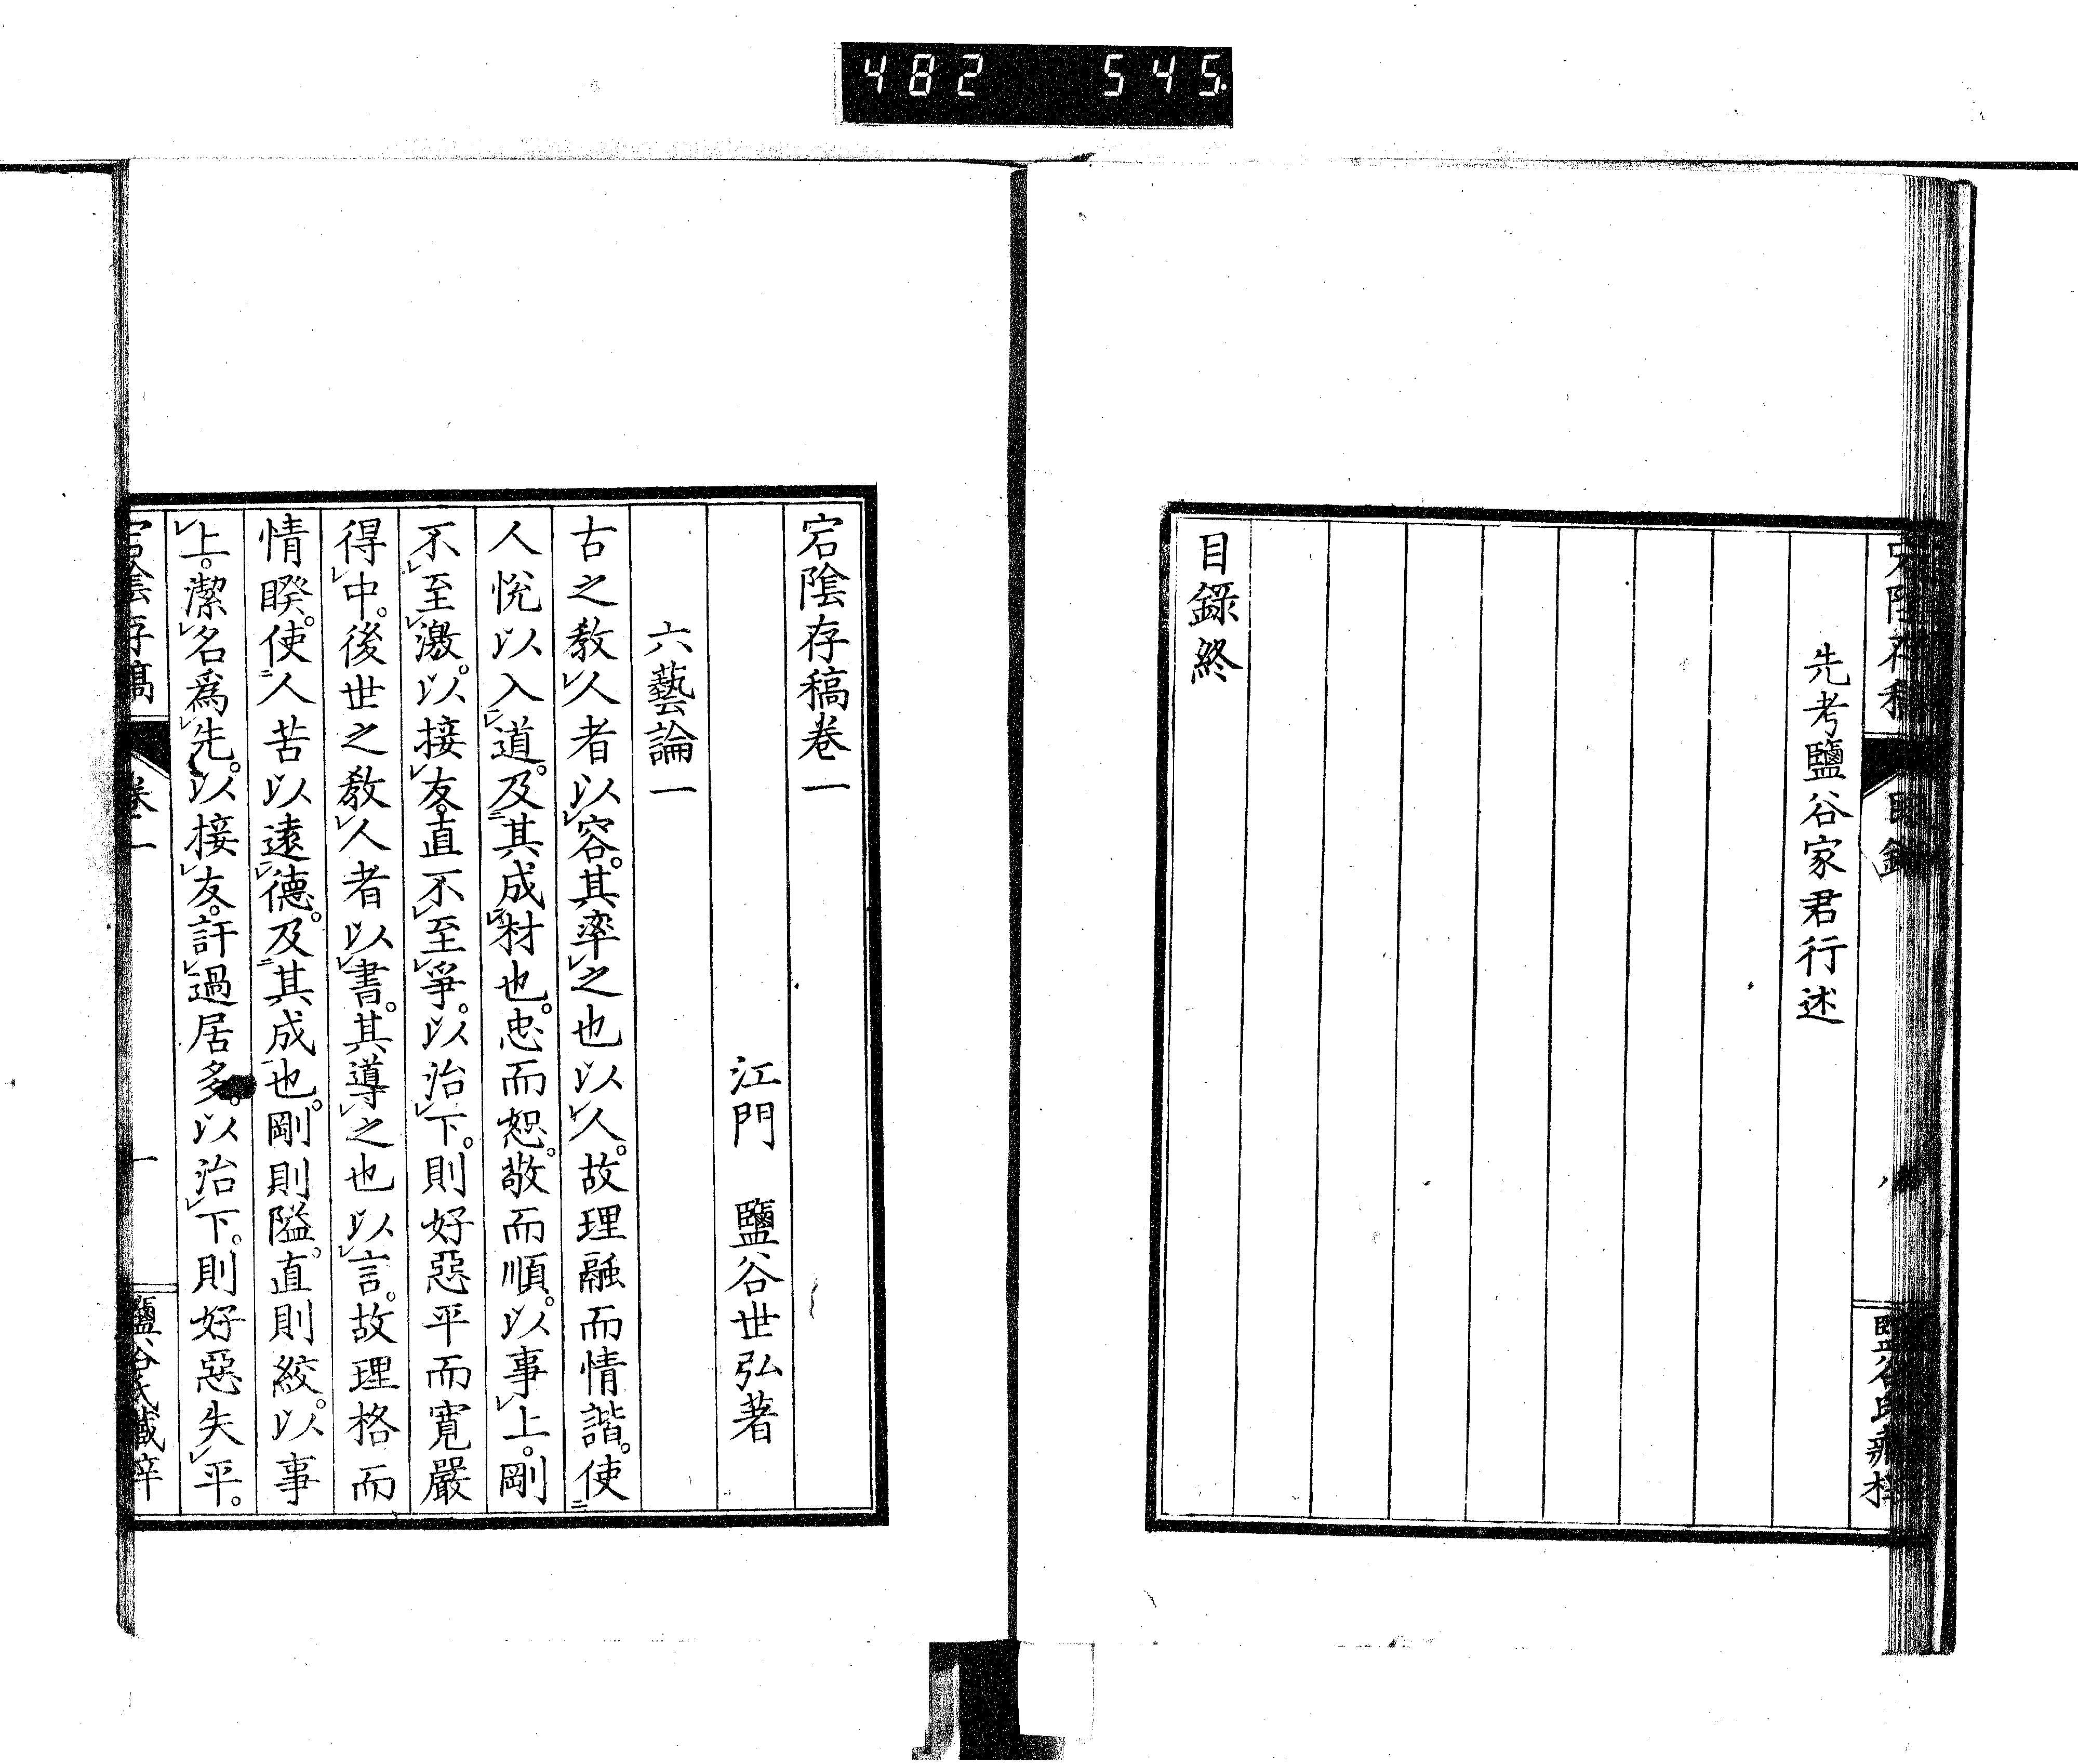 482 545
宕陰存稿
目錄
先考鹽谷家君行述
目錄終
宕陰存稿卷一
江門 鹽谷世弘著
六藝論一
古之教人者以容。其率之也以人。故理融而情諧。使
人悅以入道。及其成材也。忠而恕。敬而順。以事上。剛
不至激。以接友。直不至爭。以治下。則好惡平而寬嚴
得中。後世之教人者以書。其導之也以言。故理格而
情睽。使人苦以遠德。及其成也。剛則隘。直則絞。以事
上。潔名爲先。以接友。訐過居多。以治下。則好惡失平。
宕陰存稿
卷一
一
鹽谷氏藏梓